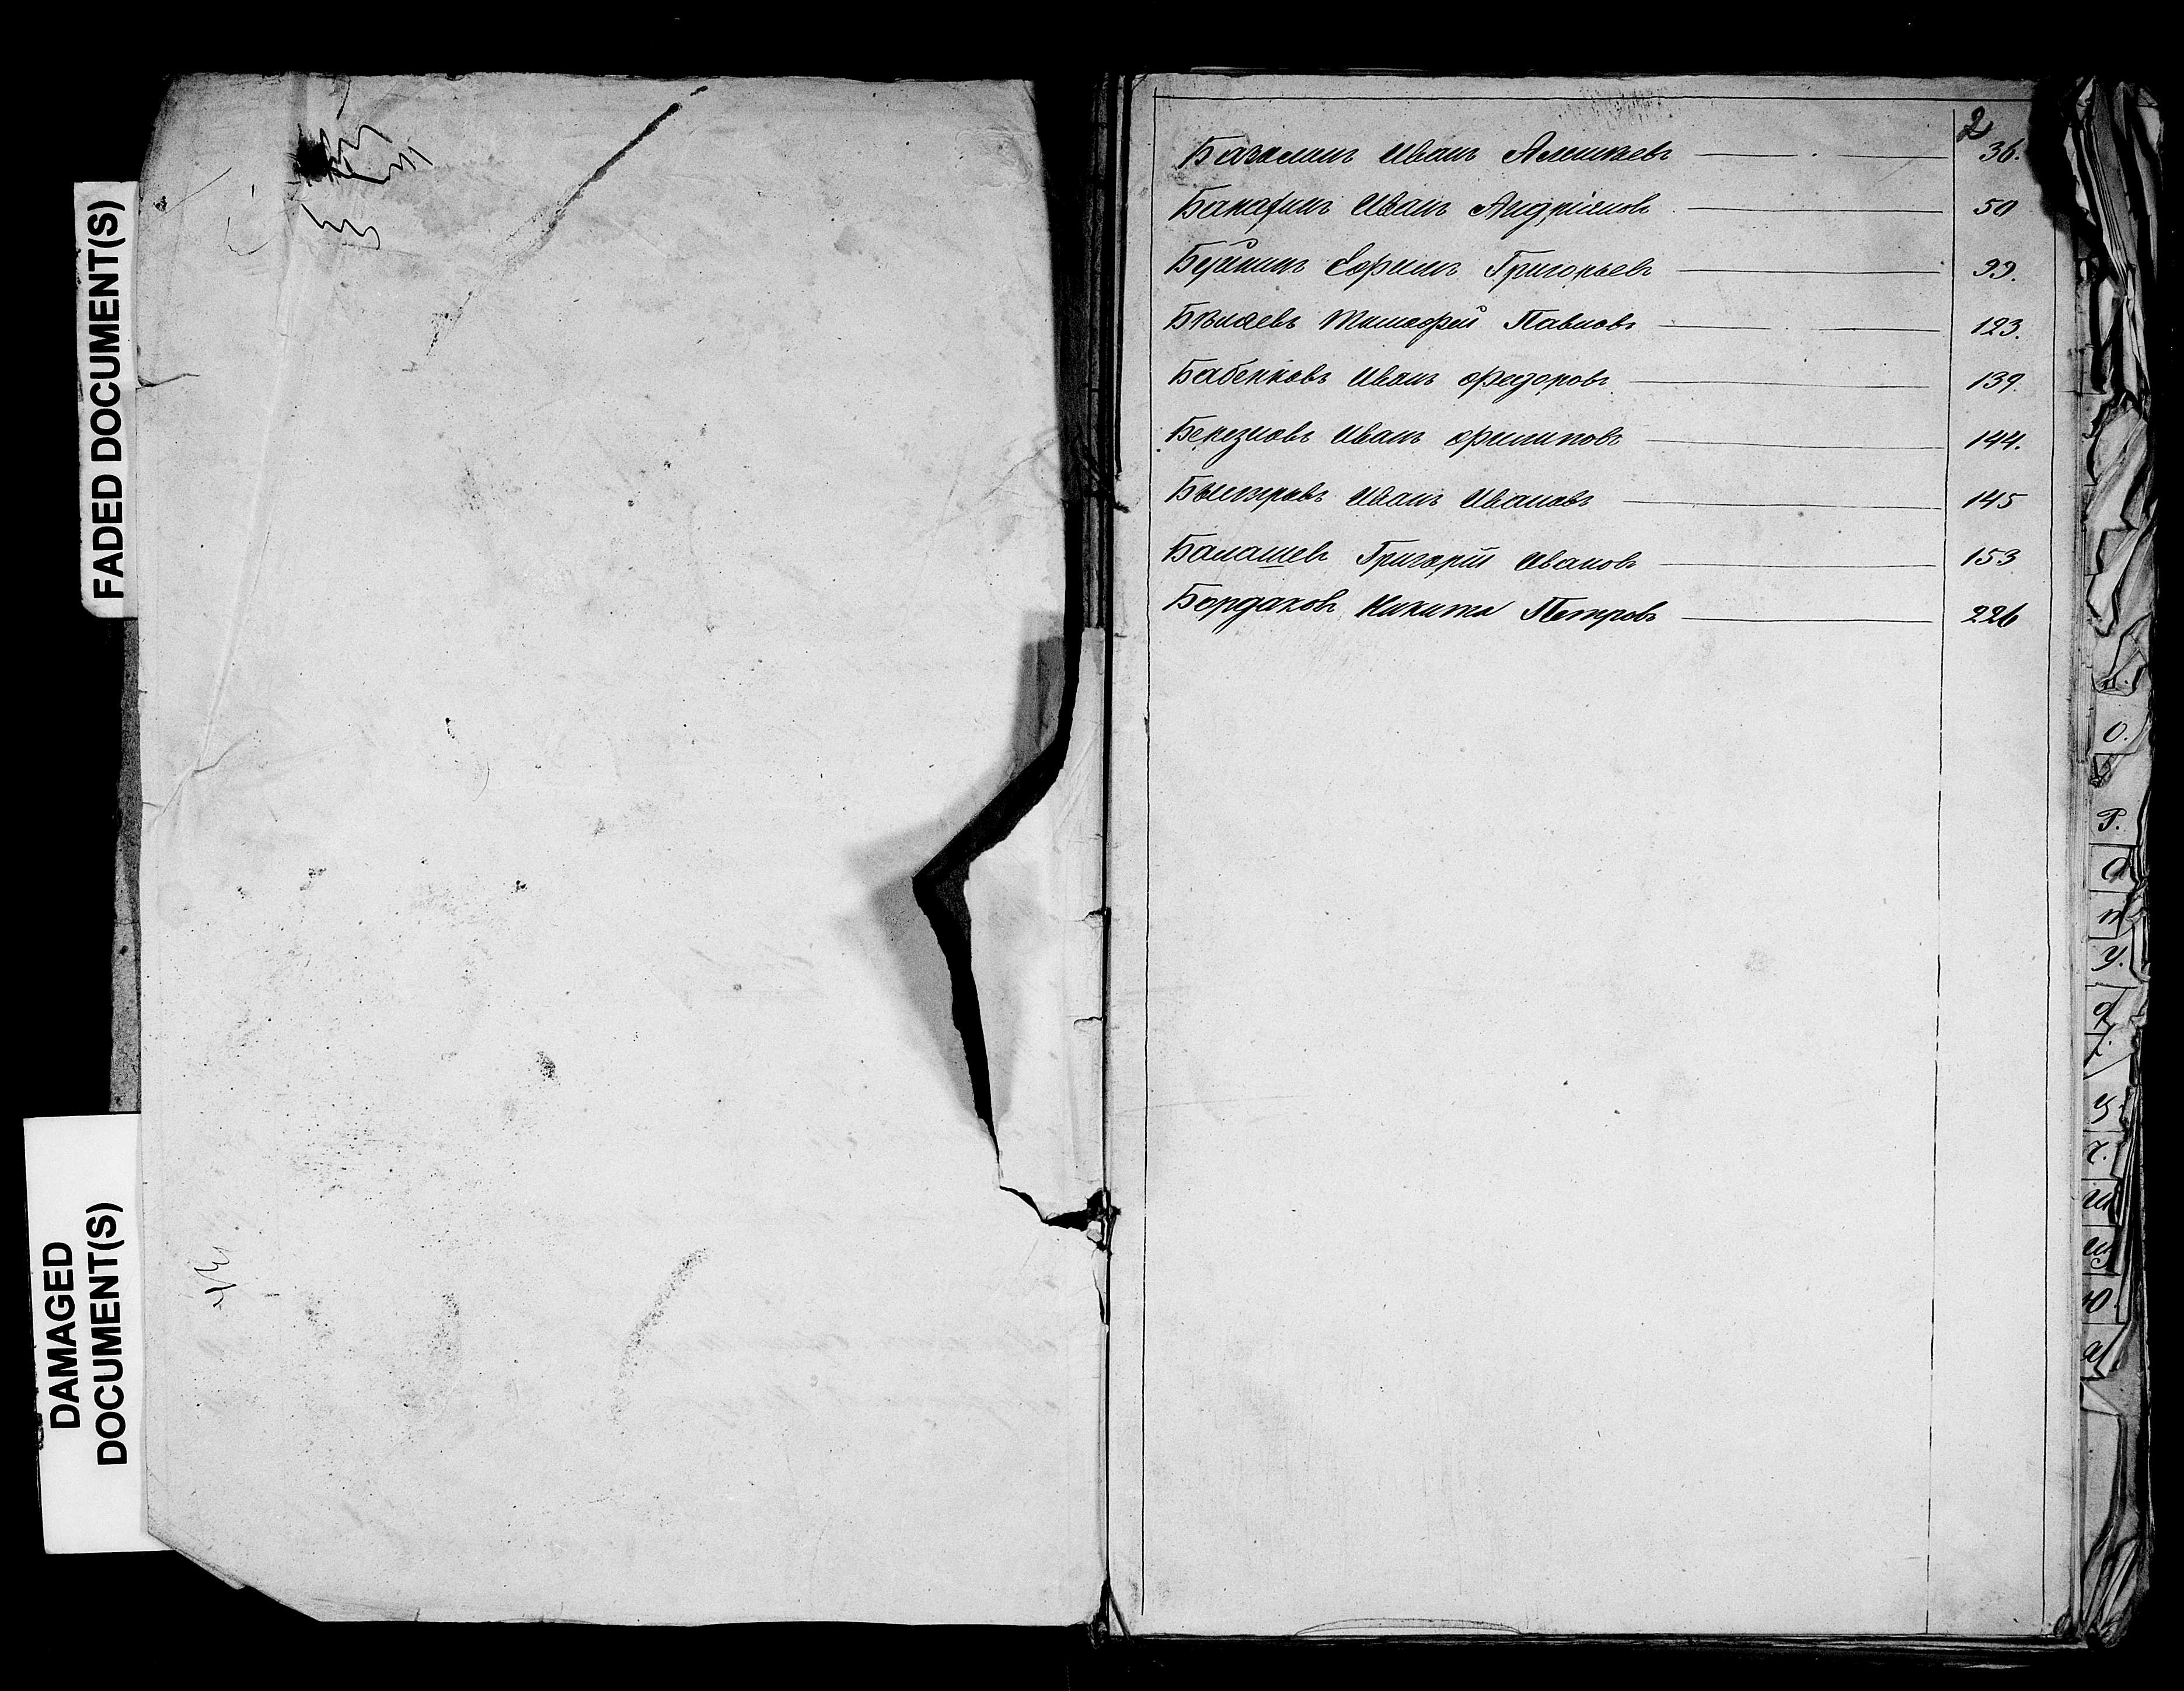 FADED DOCUMENT(S)
DAMAGED
DOCUMENT(S)
2
Иванъ Алексѣевъ 36.
Иванъ Андріяновъ 50
Буйкинъ Ефимъ Григорьевъ 99.
Бѣляевъ Тимофей Павловъ 123.
Бабенковъ Иванъ Федоровъ 139.
Березновъ Иванъ Филиповъ 144.
Быстровъ Иванъ Ивановъ 145
Балашевъ Григорій Ивановъ 153
Бордаковъ Никита Петровъ 226
О.
Р.
С
Т
У.
Ф
Ц
Ч.
Ш
Щ
Ю